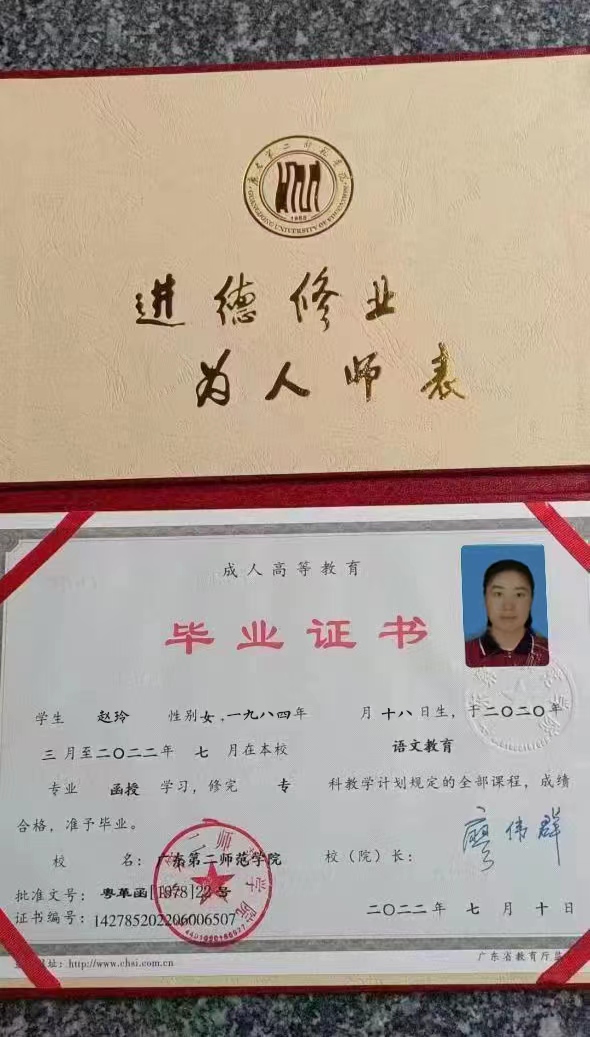 广东第二师范学院
GUANGDONG UNIVERSITY OF EDUCATION
进德修业
为人师表
成人高等教育
毕业证书
学生 赵玲 性别女,一九八四年 月十八日生,于二〇二〇年
三月至二〇二二年 七 月在本校 语文教育
专业 函授 学习,修完 专 科教学计划规定的全部课程,成绩
合格,准予毕业。
校 名:广东第二师范学院 校(院)长: 廖伟群
批准文号:粤革函[1978]22号
证书编号:142785202206006507
二〇二二年 七 月 十 日
网址:http://www.chsi.com.cn 广东省教育厅监